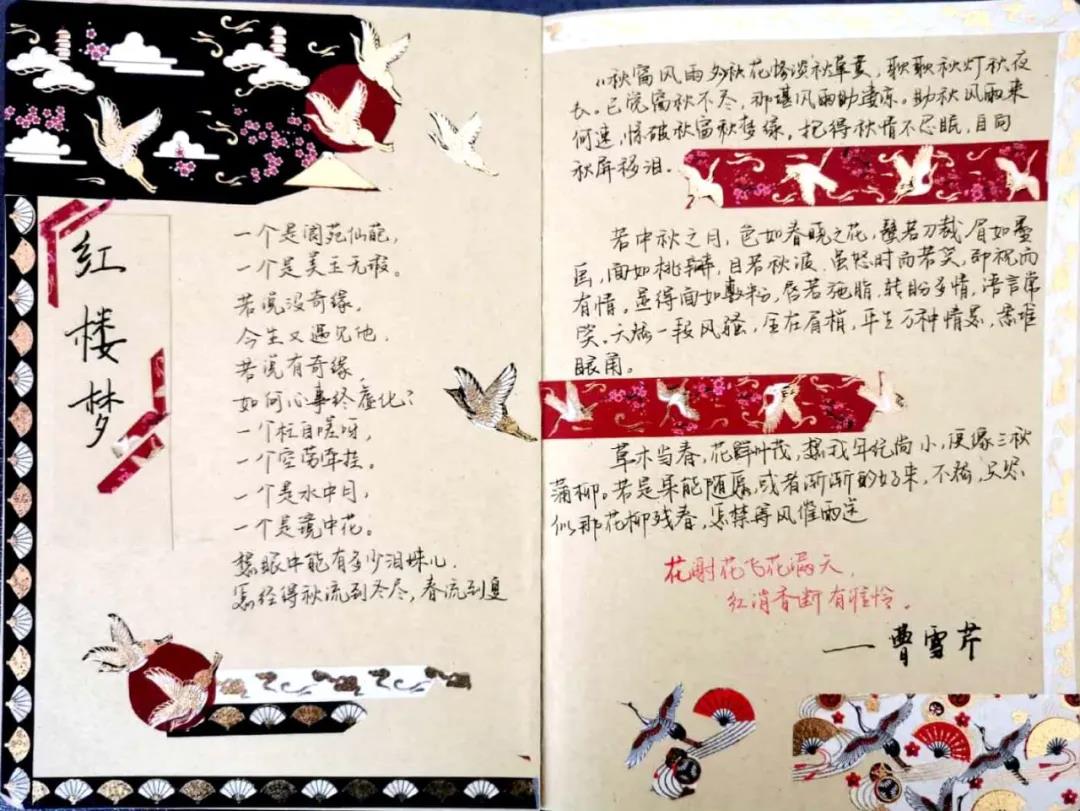 红
楼
梦
一个是阆苑仙葩,
一个是美玉无瑕。
若说没奇缘,
今生又遇见他,
若说有奇缘,
如何心事终虚化?
一个枉自嗟呀,
一个空劳牵挂。
一个是水中月,
一个是镜中花。
想眼中能有多少泪珠儿.
怎经得秋流到冬尽,春流到夏
秋窗风雨夕秋花惨淡秋草黄,耿耿秋灯秋夜
长。已觉窗秋不尽,那堪风雨助凄凉。助秋风雨来
何速,惊破秋窗秋梦缘。抱得秋情不忍眠,自向
秋屏移泪.
若中秋之月,色如春晓之花,鬓若刀裁,眉如墨
画,面如桃瓣,目若秋波.虽怒时而若笑,即视而
有情,显得面如敷粉,唇若施脂,转盼多情,语言常
笑。天然一段风骚,全在眉梢,平生万种情思,悉堆
眼角。
草木当春,花鲜叶茂,想我年纪尚小,便像三秋
蒲柳。若是果能随愿,或者渐渐的好来,不然,只恐
似那花柳残春,怎禁得风催雨送
花谢花飞花满天,
红消香断有谁怜.
——曹雪芹